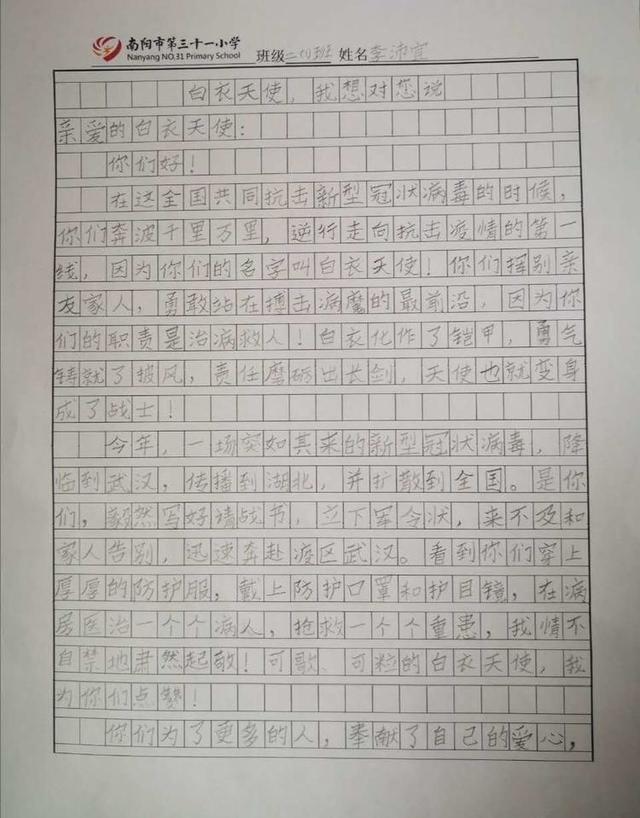 南阳市第三十一小学
Nanyang NO.31 Primary School
班级二(1)班 姓名李沛宜
白衣天使，我想对您说
亲爱的白衣天使：
你们好！
在这全国共同抗击新型冠状病毒的时候，
你们奔波千里万里，逆行走向抗击疫情的第一
线，因为你们的名字叫白衣天使！你们挥别亲
友家人，勇敢站在搏击病魔的最前沿，因为你
们的职责是治病救人！白衣化作了铠甲，勇气
铸就了披风，责任磨砺出长剑，天使也就变身
成了战士！
今年，一场突如其来的新型冠状病毒，降
临到武汉，传播到湖北，并扩散到全国。是你
们，毅然写好请战书，立下军令状，来不及和
家人告别，迅速奔赴疫区武汉。看到你们穿上
厚厚的防护服，戴上防护口罩和护目镜，在病
房医治一个个病人，抢救一个个重患，我情不
自禁地肃然起敬！可歌、可粒的白衣天使，我
为你们点赞！
你们为了更多的人，奉献了自己的爱心，